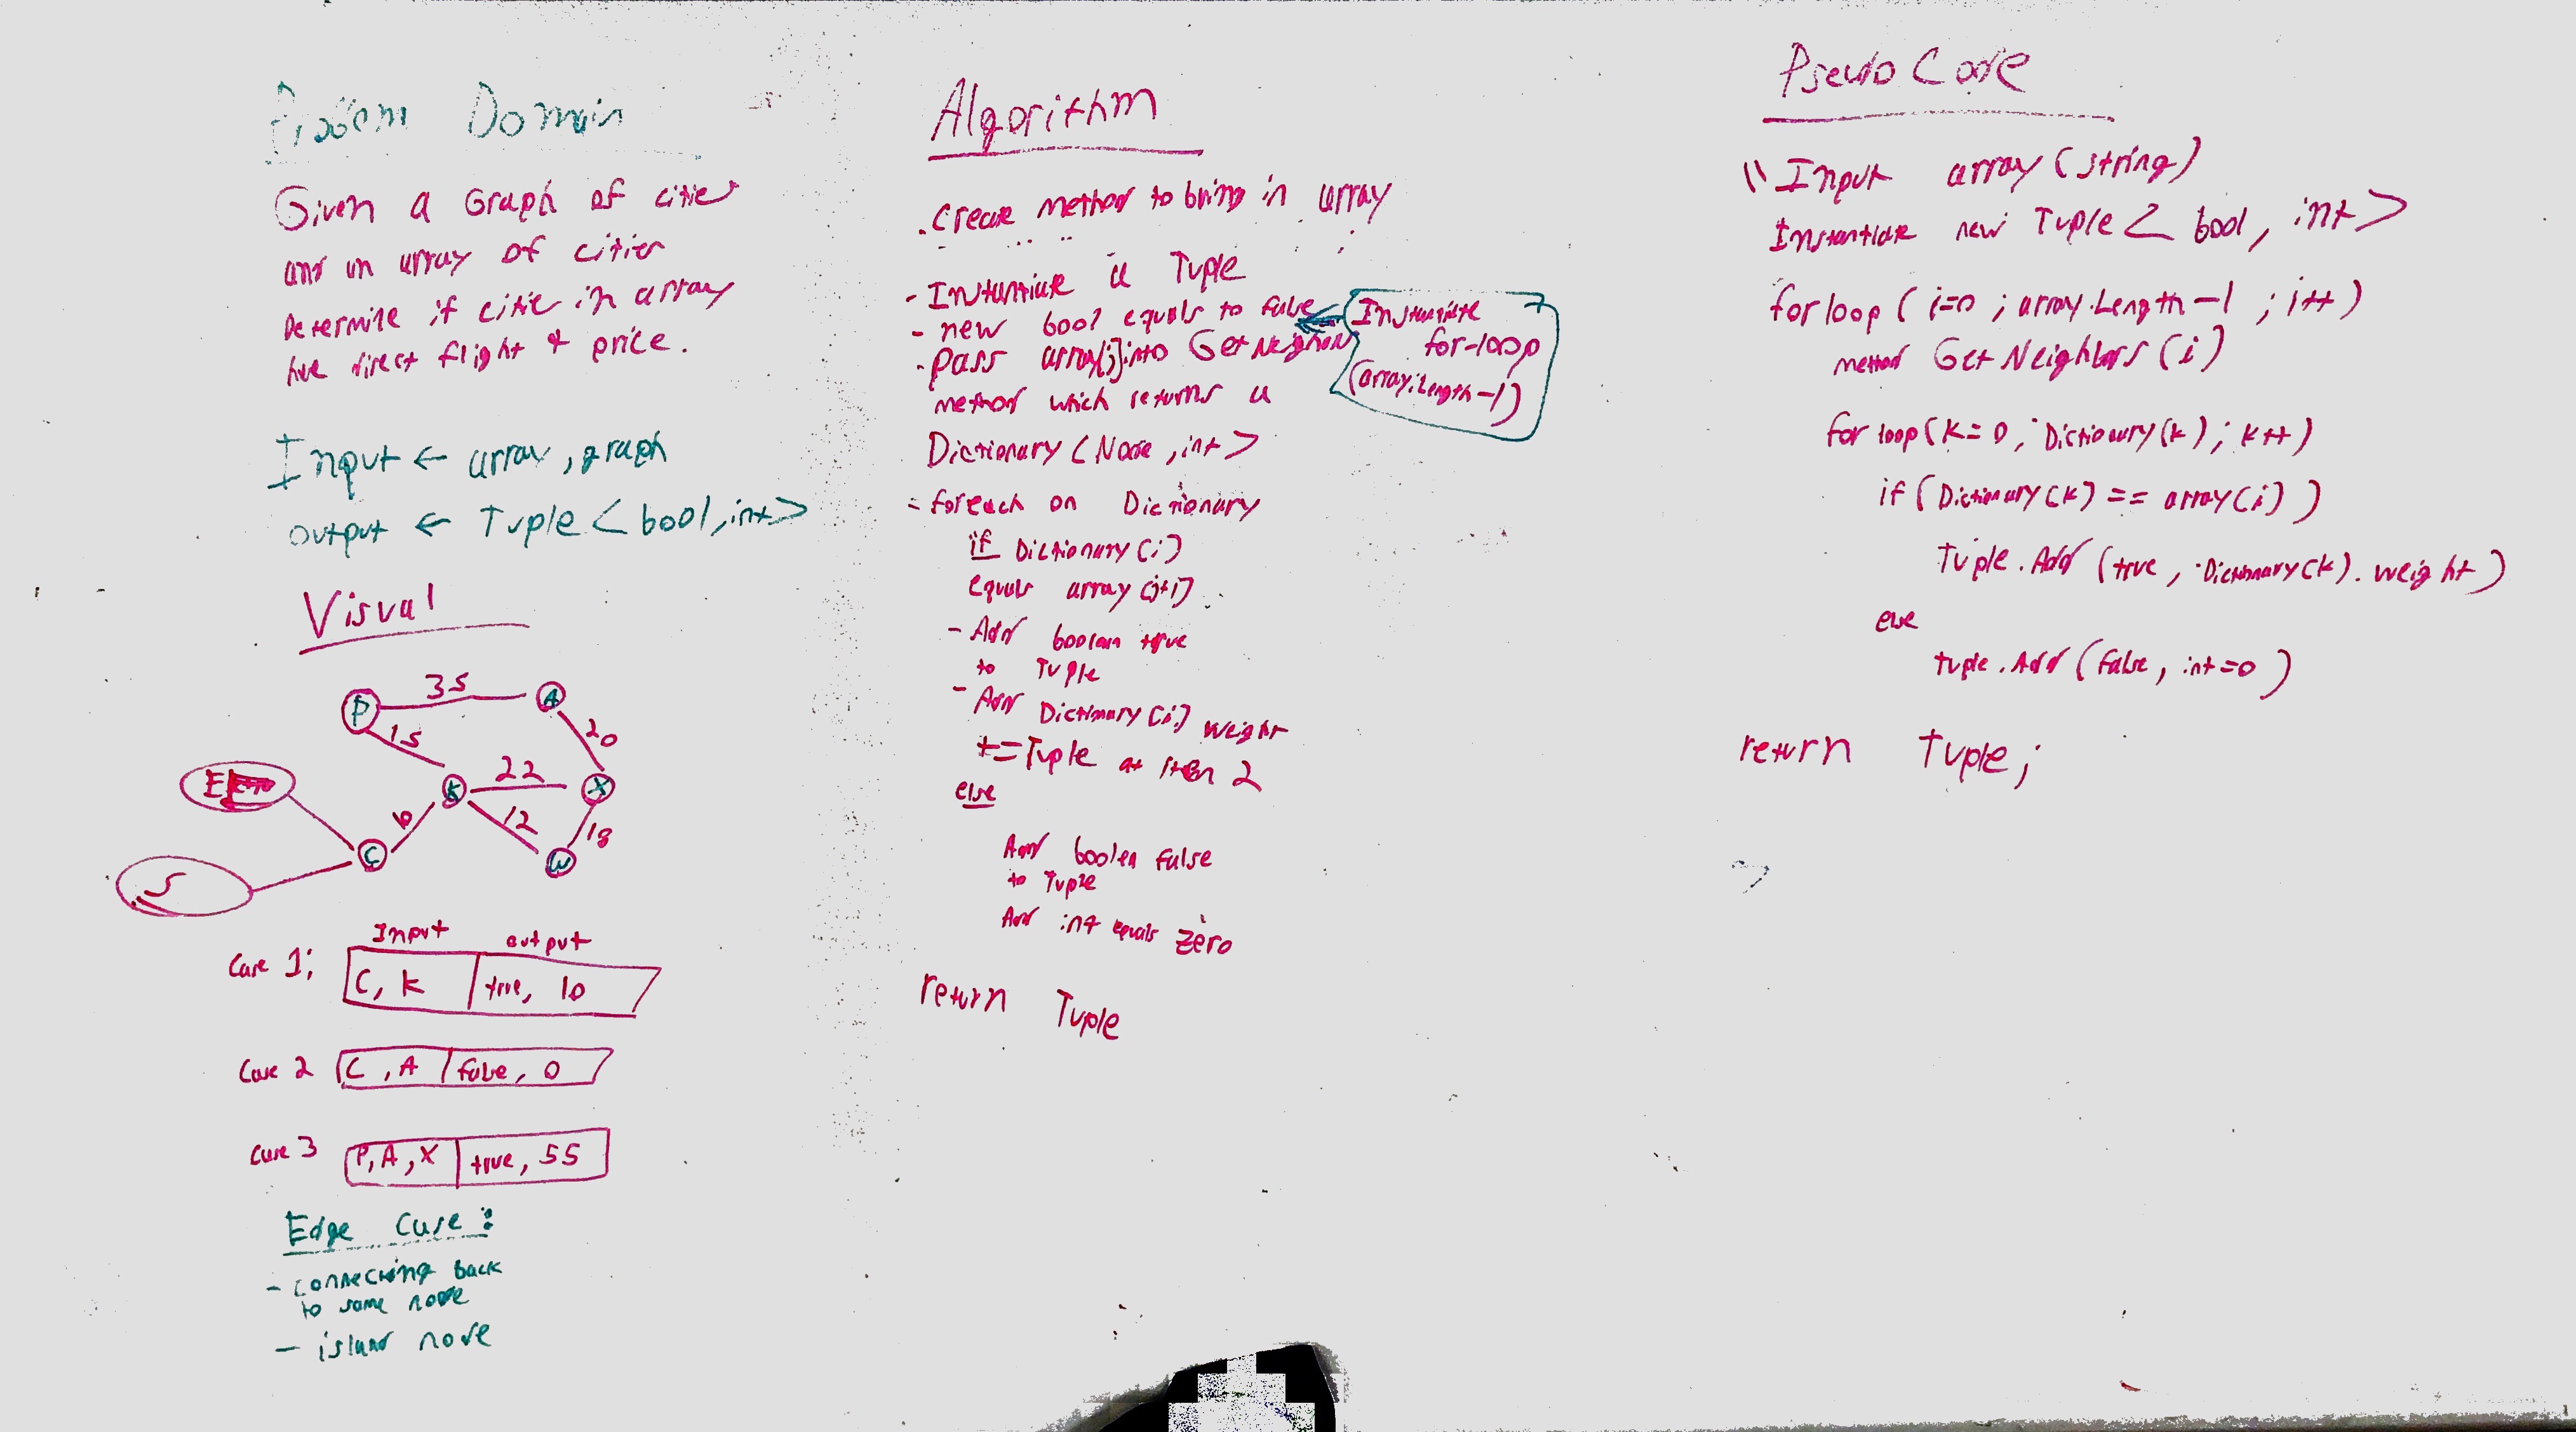 Problem Domain
Given a Graph of cities
and an array of cities
Determine if citie in array
have direct flight & price.
Input ← array, graph
output ← Tuple < bool, int >
Visual
P 35 A
15 20
E
K 22 X
10 12 18
C W
S
Input output
Case 1; C, K true, 10
Case 2 C, A false, 0
Case 3 P, A, X true, 55
Edge Case:
- connecting back
to same node
- island node
Algorithm
. Create method to bring in array
- Instantiate a Tuple
- new bool equals to false
- pass array[j] into GetNeighbors
method which returns a
Dictionary (Node, int >
Instantiate
for-loop
(array.Length-1)
- foreach on Dictionary
if Dictionary (i)
equals array (j+1)
- Add boolean true
to Tuple
- Add Dictionary [i] weight
+= Tuple at item 2
else
Add boolen false
to Tuple
Add int equals zero
return Tuple
Pseudo Code
\\ Input array (string)
Instantiate new Tuple < bool, int >
for loop ( i=0 ; array.Length-1 ; i++ )
method GetNeighbors (i)
for loop ( k = 0 ; Dictionary (k) ; k++ )
if ( Dictionary (k) == array (i) )
Tuple.Add (true, Dictionary (k). weight )
else
tuple.Add ( false, int=0 )
return Tuple;